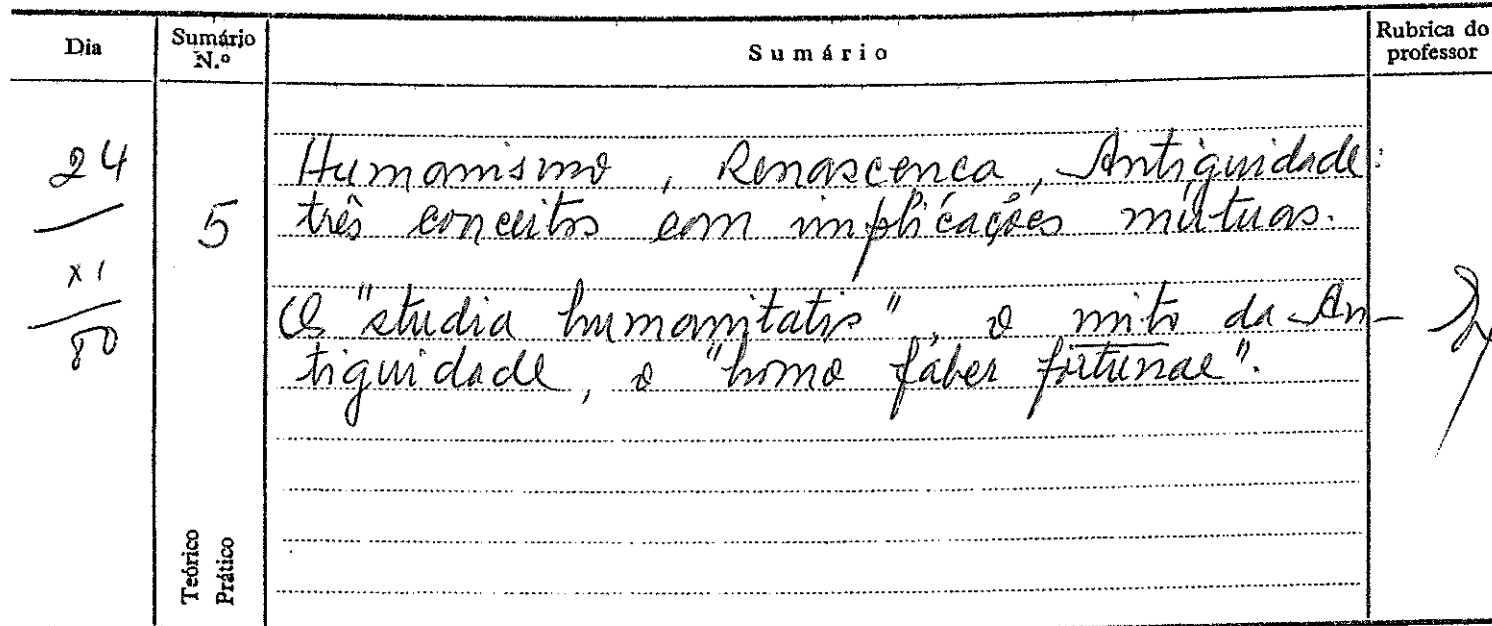 Dia
Sumário N.º
Sumário
Rubrica do professor
24
XI
80
5
Humanismo, Renascença, Antiguidade:
três conceitos com implicações mútuas.
Os "studia humanitatis", o mito da An-
tiguidade, o "homo faber fortunae".
Teórico
Prático